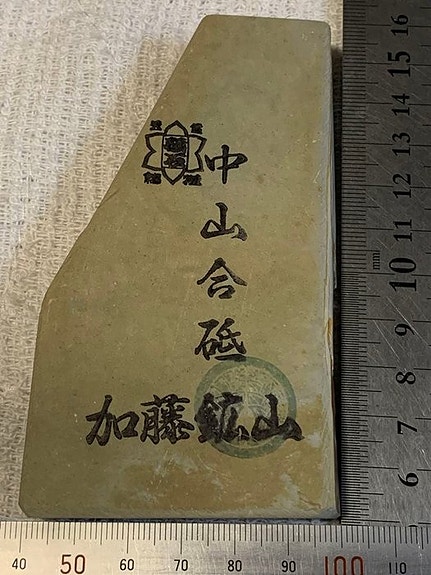 中山合砥
加藤鉱山
16
15
14
13
12
11
mm
10
9
8
7
6
40 50 60 70 80 90 100 110